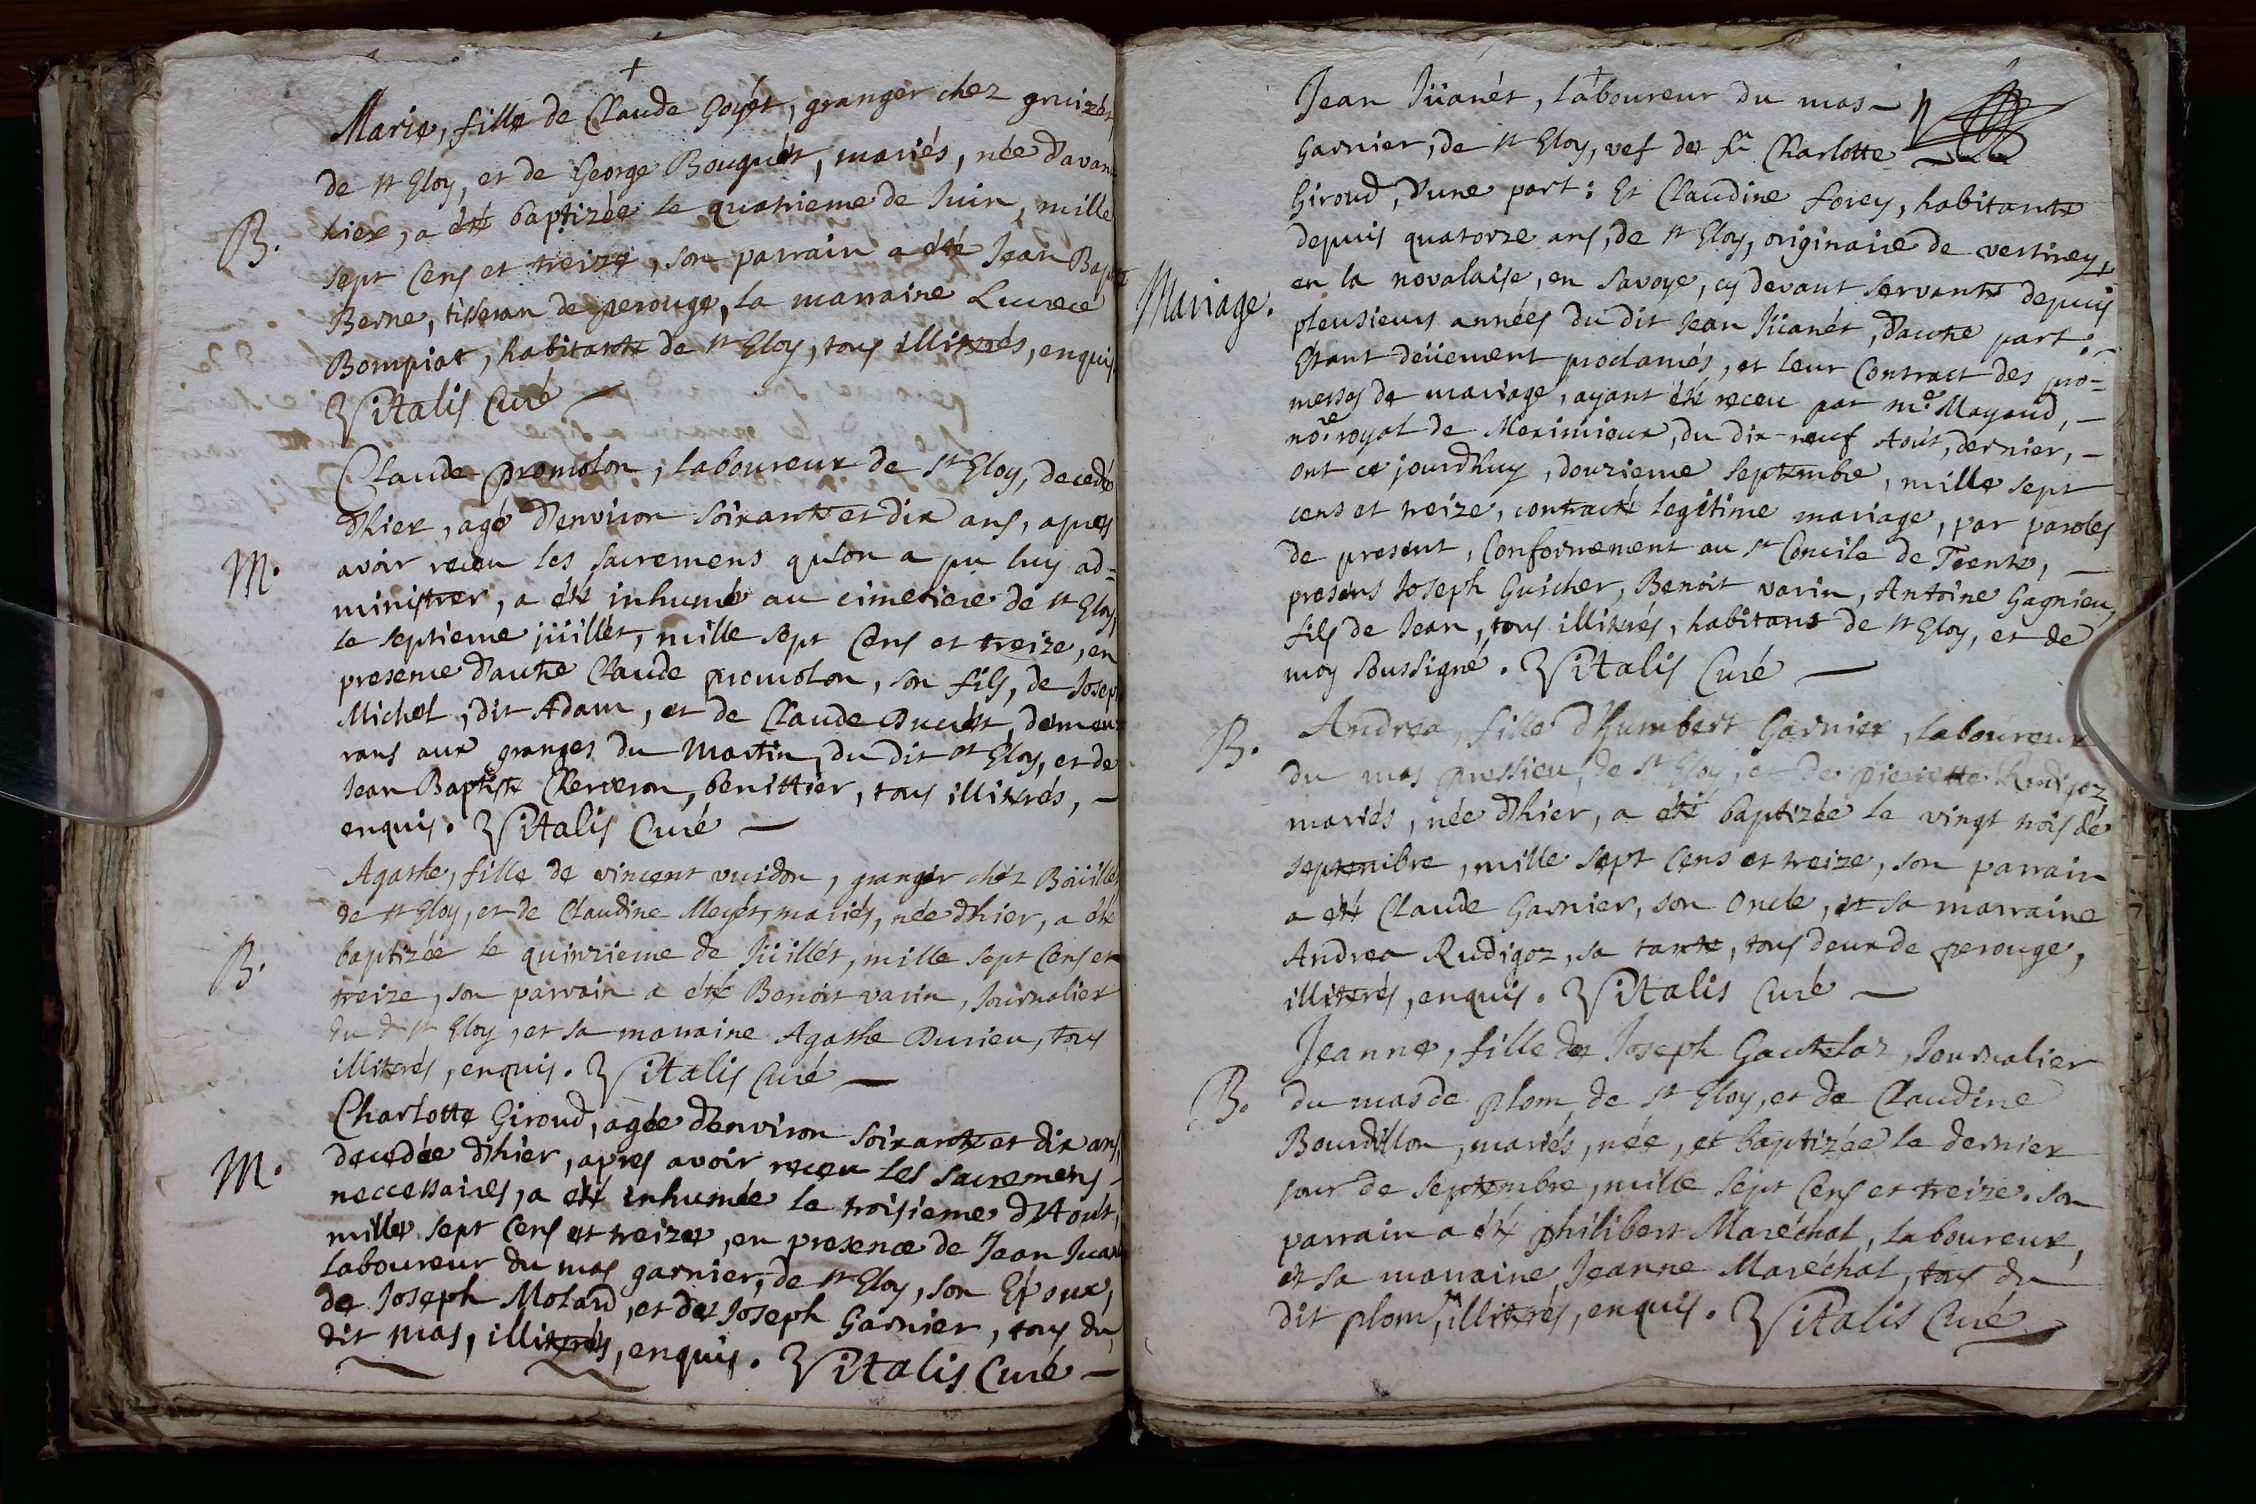 +
Marie, fille de Claude Goyet, granger chez gruizet,
de st Eloy, et de George Bouquet, mariés, née d'avan
B.
hier, a été baptizée le quatrieme de Juin, mille
sept Cens et treize, son parrain a été Jean Bapte
Berne, tisseran de perouge, la marraine Lucrece
Bompiat, habitante de st Eloy, tous illiterés, enquis
Vitalis Curé
Claude promolon, laboureur de st Eloy, decedé
d'hier, agé d'environ soixante et dix ans, apres
M.
avoir receu les sacremens qu'on a pu luy ad=
ministrer, a été inhumé au cimetiere de st Eloy
le septieme jüillét, mille sept Cens et treize, en
presence d'autre Claude promolon, son fils, de Josep
Michel, dit Adam, et de Claude Ducrét, demeu
rans aux granges du Martin, du dit st Eloy, et de
Jean Baptiste Cherveron, benittier, tous illiterés,
enquis. Vitalis Curé
Agathe, fille de vincent vuidon, granger chéz Boüillet
de st Eloy, et de Claudine Meyét, mariés, née d'hier, a été
B.
baptizée le quinzieme de Jüillét, mille sept Cens et
treize, son parrain a été Benoit varin, Journalier
du dt st Eloy, et sa marraine Agathe Durieu, tous
illiterés, enquis. Vitalis Curé
Charlotte Giroud, agée d'environ soixante et dix ans,
M.
decedée d'hier, apres avoir receu les sacremens
neccessaires, a été inhumée le troisieme d'Aout,
mille sept Cens et treize, en presence de Jean Juan
laboureur du mas garnier, de st Eloy, son Epoux,
de Joseph Molard, et de Joseph Garnier, tous du
dit mas, illiterés, enquis. Vitalis Curé
+
Jean Jüanét, laboureur du mas
Garnier, de st Eloy, vef de fe Charlotte
Giroud, d'une part: Et Claudine forey, habitante
depuis quatorze ans, de st Eloy, originaire de vertiney,
en la novalaise, en Savoye, cy devant servante depuis
Mariage.
pleusieurs années du dit Jean Jüanét, d'autre part.
Etant deüement proclamés, et leur Contract des pro=
messes de mariage, ayant été receu par me. Mayaud,
nore. royal de Meximieux, du dix-neuf Aout, dernier,
ont ce jourd'huy, douzieme septembre, mille sept
cens et treize, contracté legitime mariage, par paroles
de present, Conformement au st Concile de Trente,
presens Joseph Guicher, Benoit varin, Antoine Gagnieu,
fils de Jean, tous illiterés, habitans de st Eloy, et de
moy soussigné. Vitalis Curé
Andrea, fille d'Humbert Garnier, laboureur
B.
du mas pressieu, de st Eloy, et de pierrette Rudigoz
mariés, née d'hier, a été baptizée le vingt trois de
septembre, mille sept Cens et treize, son parrain
a été Claude Garnier, son oncle, et sa marraine
Andrea Rudigoz, sa tante, tous deux de perouge,
illiterés, enquis. Vitalis Curé
Jeanne, fille de Joseph Gautelaz, Journalier
B.
du mas de plom, de st Eloy, et de Claudine
Bourdillon, mariés, née, et baptizée le dernier
jour de septembre, mille sept Cens et treize. son
parrain a été philibert Maréchal, laboureur,
et sa marraine, Jeanne Maréchal, tous du
dit plom, illiterés, enquis. Vitalis Curé